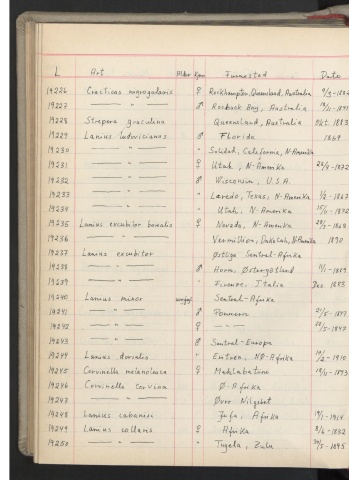 L Art Alder Kjønn Funnested Dato
19226 Cracticus nigrogularis ♀ Rockhampton, Queensland, Australia
19227 —— " —— ♂ Roebuck Bay, Australia
19228 Strepera graculina Queensland, Australia Okt. 1883
19229 Lanius ludovicianus ♂ Florida 1869
19230 —— " —— " Solidad, California, N-Amerika
19231 —— " —— ♀ Utah, N-Amerika 26/9-1872
19232 —— " —— ♂ Wisconsin, U.S.A.
19233 —— " —— " Laredo, Texas, N-Amerika
19234 —— " —— " Utah, N-Amerika
19235 Lanius excubitor borealis ♀ Nevada, N-Amerika
19236 —— " —— Vermillion, Dakotah, N-Amerika 1890
19237 Lanius excubitor Østlige Sentral-Afrika
19238 —— " —— ♂ Horn, Østergötland
19239 —— " —— " Firenze, Italia Des. 1883
19240 Lanius minor Sentral-Afrika
19241 —— " —— ♂ Pommern
19242 —— " —— ♀ —— " ——
19243 —— " —— ♂ Sentral-Europa
19244 Lanius dorsalis " NØ-Afrika
19245 Corvinella melanoleuca ♀
19246 Corvinella corvina Ø-Afrika
19247 —— " —— Øvre
19248 Lanius cabanisi Afrika
19249 Lanius collaris ♀ Afrika
19250 —— " —— " Tugela, Zulu